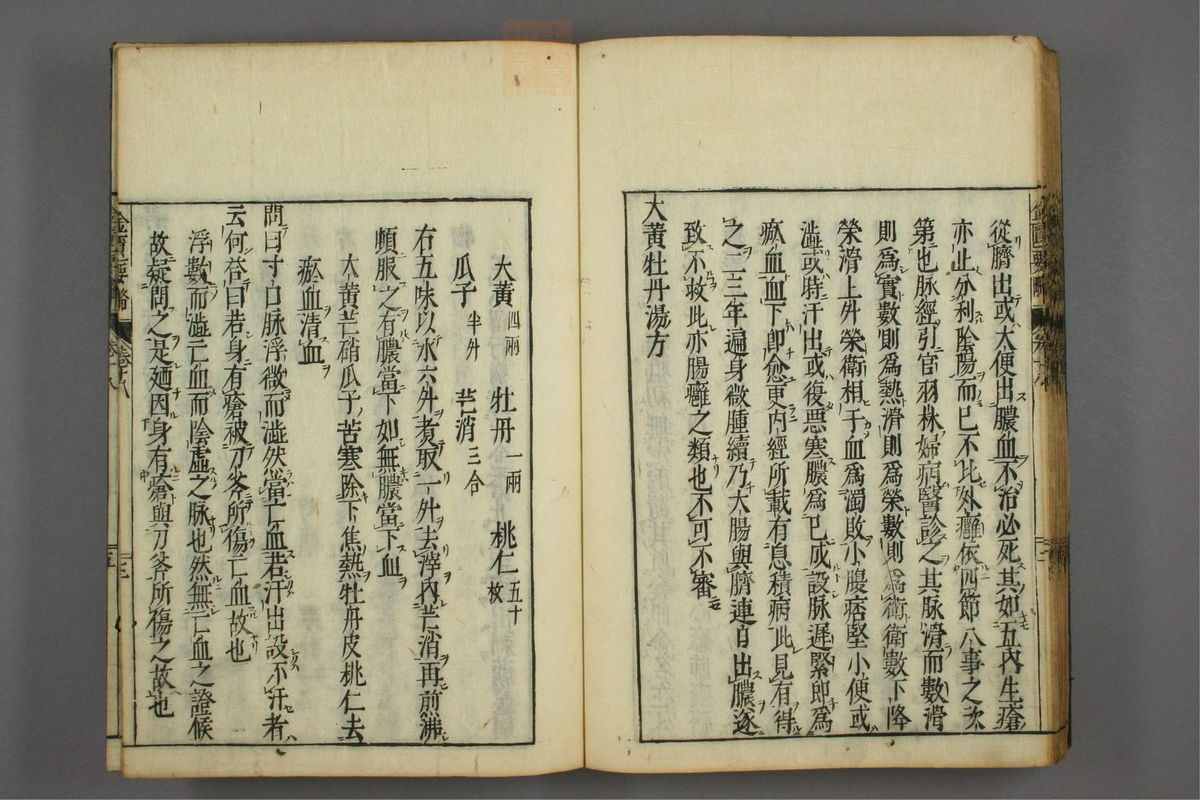 從臍出或大便出膿血不治必死其如五内生瘡
亦止分利陰陽而已不比外癰依四節八事之次
第也脉經引官羽林婦病醫診之其脉滑而數滑
則爲實數則爲熱滑則爲榮數則爲衛衛數下降
榮滑上升榮衛相干血爲濁敗小腹痞堅小便或
澁或時汗出或復悪寒膿爲已成設脉遲緊即爲
瘀血血下即愈更内經所載有息積病此見有得
之二三年遍身微腫續乃大腸與臍連自出膿遂
致不救此亦腸癰之類也不可不審
大黃牡丹湯方
大黃四兩 牡丹一兩 桃仁五十枚
瓜子半升 芒消三合
右五味以水六升煮取一升去滓内芒消再煎沸
頓服之有膿當下如無膿當下血
大黃芒硝瓜子苦寒除下焦熱牡丹皮桃仁去
瘀血清血
問曰寸口脉浮微而澁然當亡血若汗出設不汗者
云何答曰若身有瘡被刀斧所傷亡血故也
浮數而澁亡血而陰虛之脉也然無亡血之證候
故疑問之是廼因身有瘡與刀斧所傷之故也